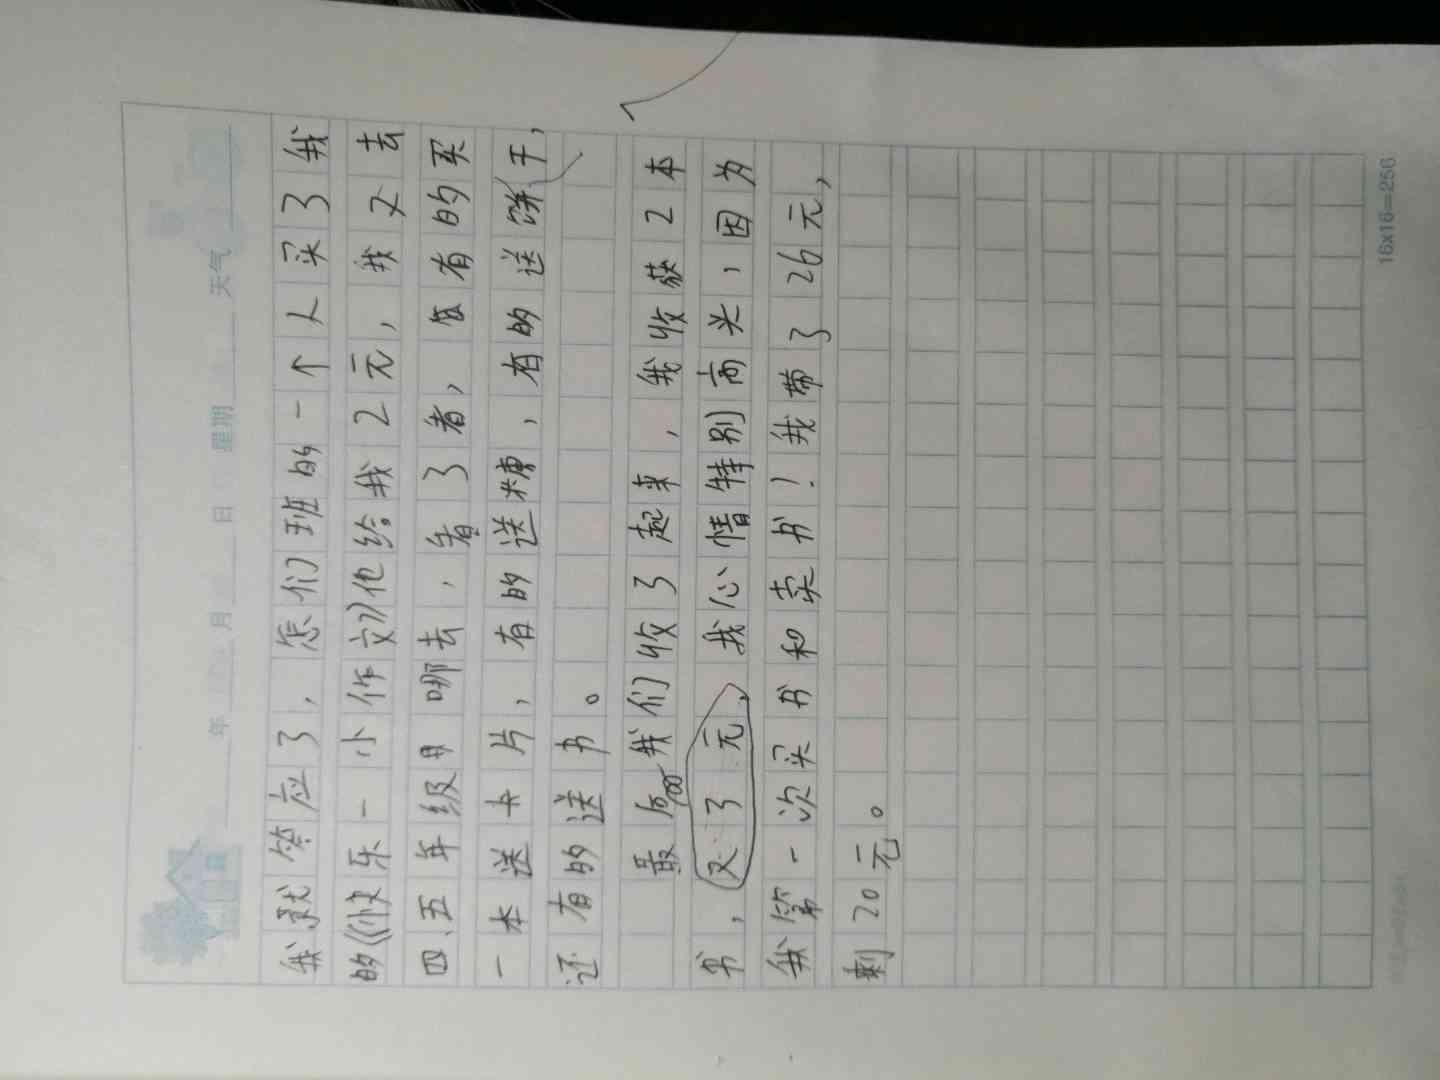 年 月 日 星期 天气
我就答应了，怎们班的一个人买了我
的《快乐一小作文》他给我2元，我又去
四、五年级哪去，看了看，有的买
一本送卡片，有的送糖，有的送饼干，
还有的送书。
最后我们收了起来，我收获2本
书，又3元，我心情特别高兴，因为
我第一次买书和卖书！我带了26元，
剩20元。
16x16=256